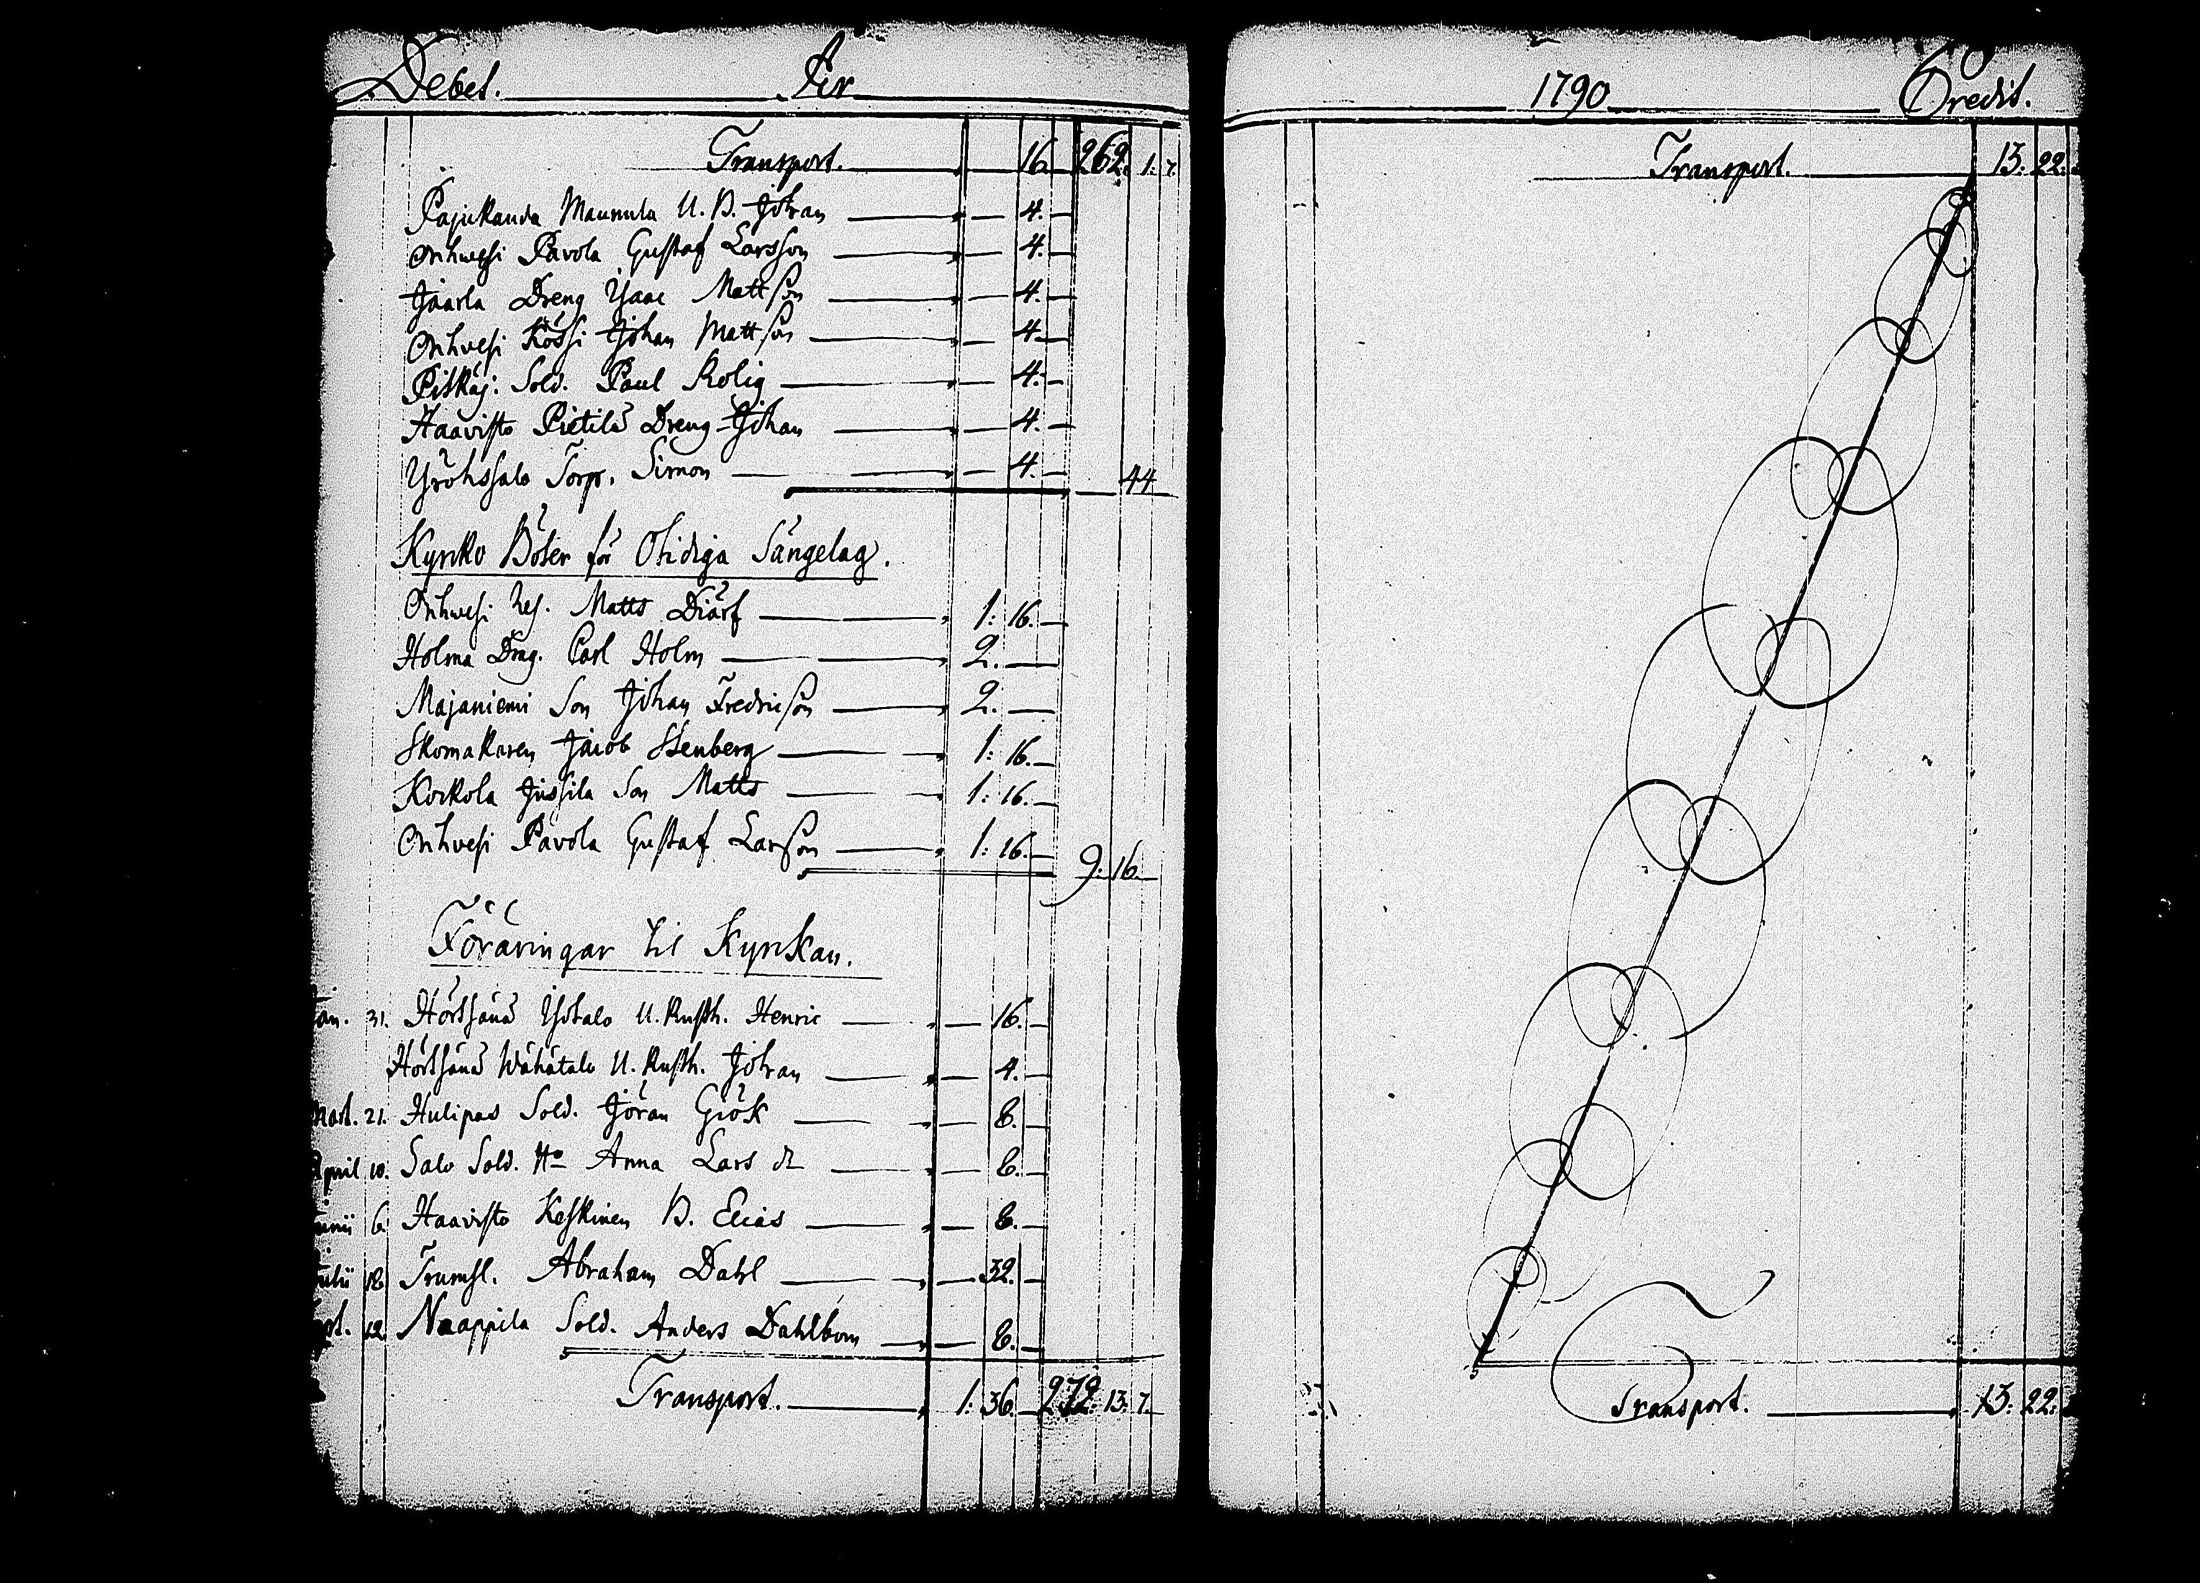 Debet. År
Transport. 16. 262. 1. 7.
Pajukanda Maunula U. B. Johan 4.
Orihvesi Pavola Gustaf Larsson 4.
Jaarla Dreng Isaac Mattson 4.
Orihvesi Kössi Johan Mattson 4.
Pitkäj. Sold. Paul Rolig 4.
Haavisto Pietilä Dreng Johan 4.
Yröhssalo Torp. Simon 4. 44
Kyrko Böter för Otidiga Sängelag.
Orihvesi Res. Matts Diärf 1: 16.
Holma Drag. Carl Holm 2.
Majaniemi Son Johan Fredricson 2.
Skomakaren Jacob Stenberg 1: 16.
Korkola Jussila Son Matts 1: 16.
Orihvesi Pavola Gustaf Larsson 1: 16. 9: 16.
Föräringar til Kyrkan.
Jan. 31. Hörtsänä Ylötalo U. Rusth. Henric 16.
Hörtsänä Wähätalo U. Rusth. Johan 4.
Mart. 21. Hulipas Sold. Jöran Giök 8.
April 10. Salo Sold. Ho Anna Lars dr 8.
Junii 6. Haavisto Keskinen B. Elias 8.
Julii 18. Trumsl. Abraham Dahl 32.
Sept. 12. Naappila Sold. Anders Dahlbom 8.
Transport. 1: 36. 272: 13. 7.
1790 Credit.
Transport. 13. 22.
Transport. 13: 22.